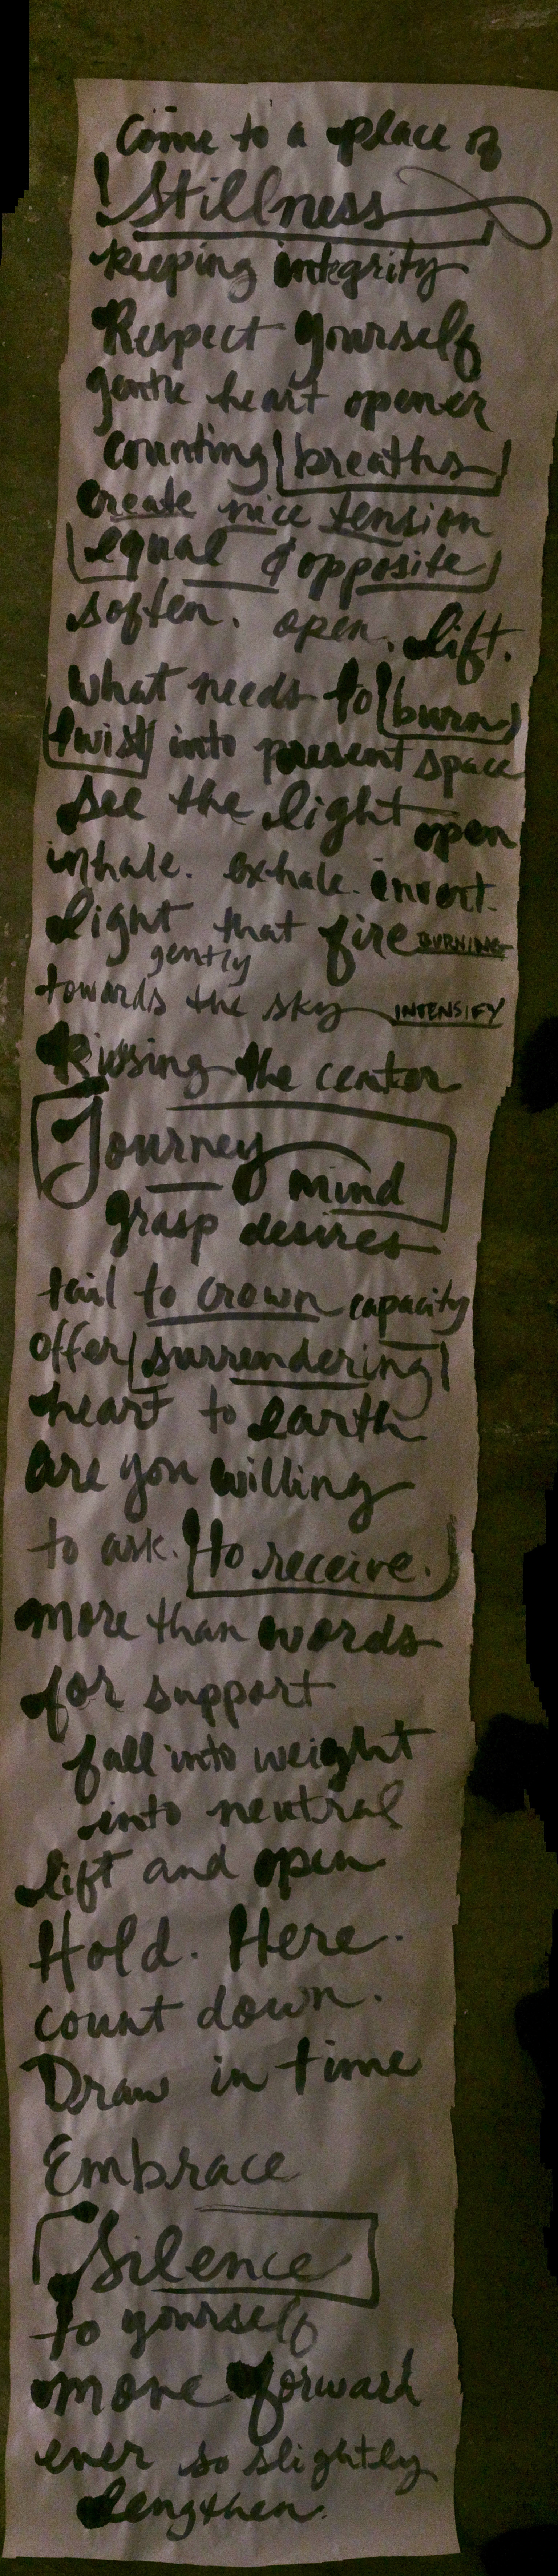 Come to a place of
Stillness
keeping integrity
Respect yourself
gentle heart opener
counting breaths
create nice tension
equal & opposite
soften. open. lift.
what needs to burn
twist into present space
see the light open
inhale. exhale. invert.
light that fire BURNING
gently
towards the sky INTENSIFY
Kissing the center
Journey
mind
grasp desires
tail to crown capacity
offer surrendering
heart to earth
are you willing
to ask. to receive.
more than words
for support
fall into weight
into neutral
lift and open
Hold. Here.
count down.
Draw in time
Embrace
Silence
to yourself
move forward
ever so slightly
lengthen.